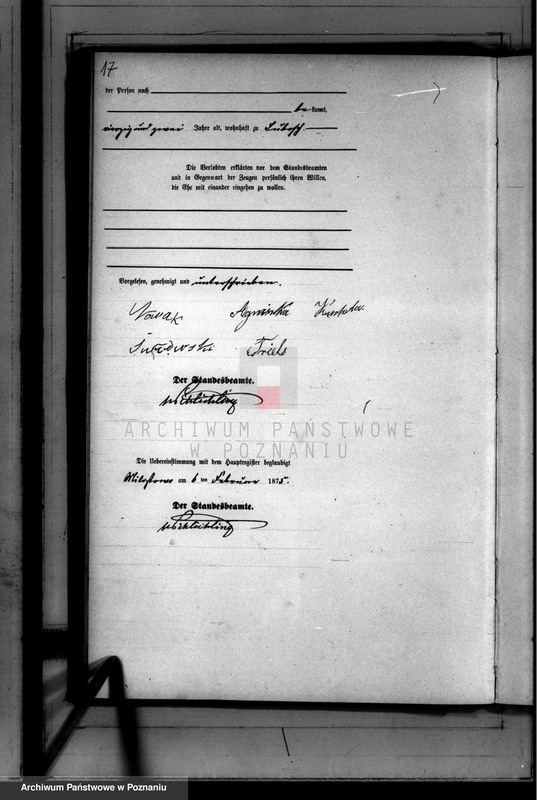 17
der Person nach
be kannt,
vierzig und zwei Jahre alt, wohnhaft zu Lubosch
Die Verlobten erklärten vor dem Standesbeamten
und in Gegenwart der Zeugen persönlich ihren Willen,
die Ehe mit einander eingehen zu wollen.
Vorgelesen, genehmigt und unterschrieben.
Nowak Agnieska
Friels
Der Standesbeamte.
ARCHIWUM PAŃSTWOWE
W POZNANIU
Die Uebereinstimmung mit dem Hauptregister beglaubigt
Milostowo am 6 ten Februar 1875.
Der Standesbeamte.
Archiwum Państwowe w Poznaniu